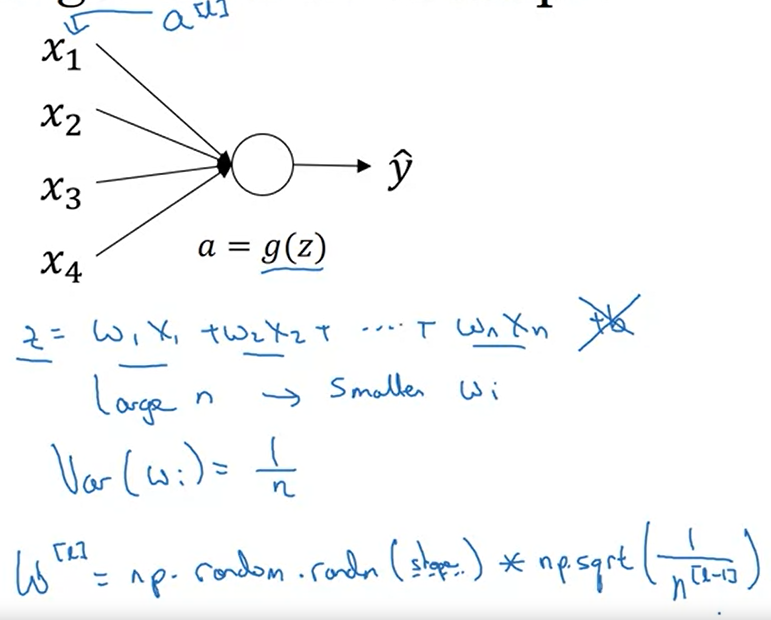 a^[l]
x₁
x₂
x₃
x₄
ŷ
a = g(z)
z = w₁x₁ + w₂x₂ + .... + wₙxₙ +b
Large n → Smaller wᵢ
Var(wᵢ) = 1/n
W^[l] = np.random.randn(shape..) * np.sqrt(1/n^[l-1])